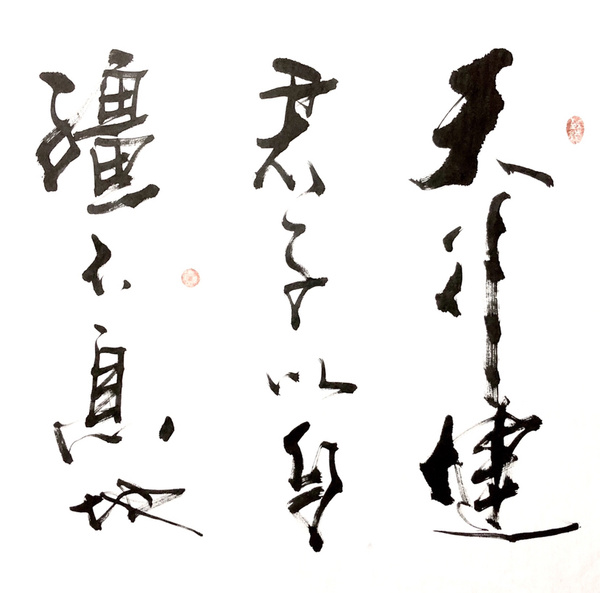 天行健
君子以自
彊不息